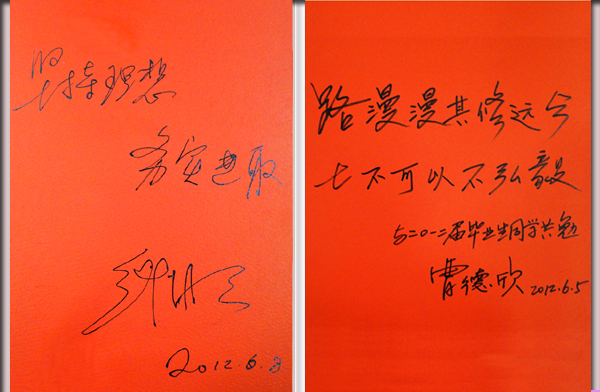 坚持理想
务实进取
2012.6.8
路漫漫其修远兮
士不可以不弘毅
与二〇一二届毕业生同学共勉
曹德欣 2012.6.5